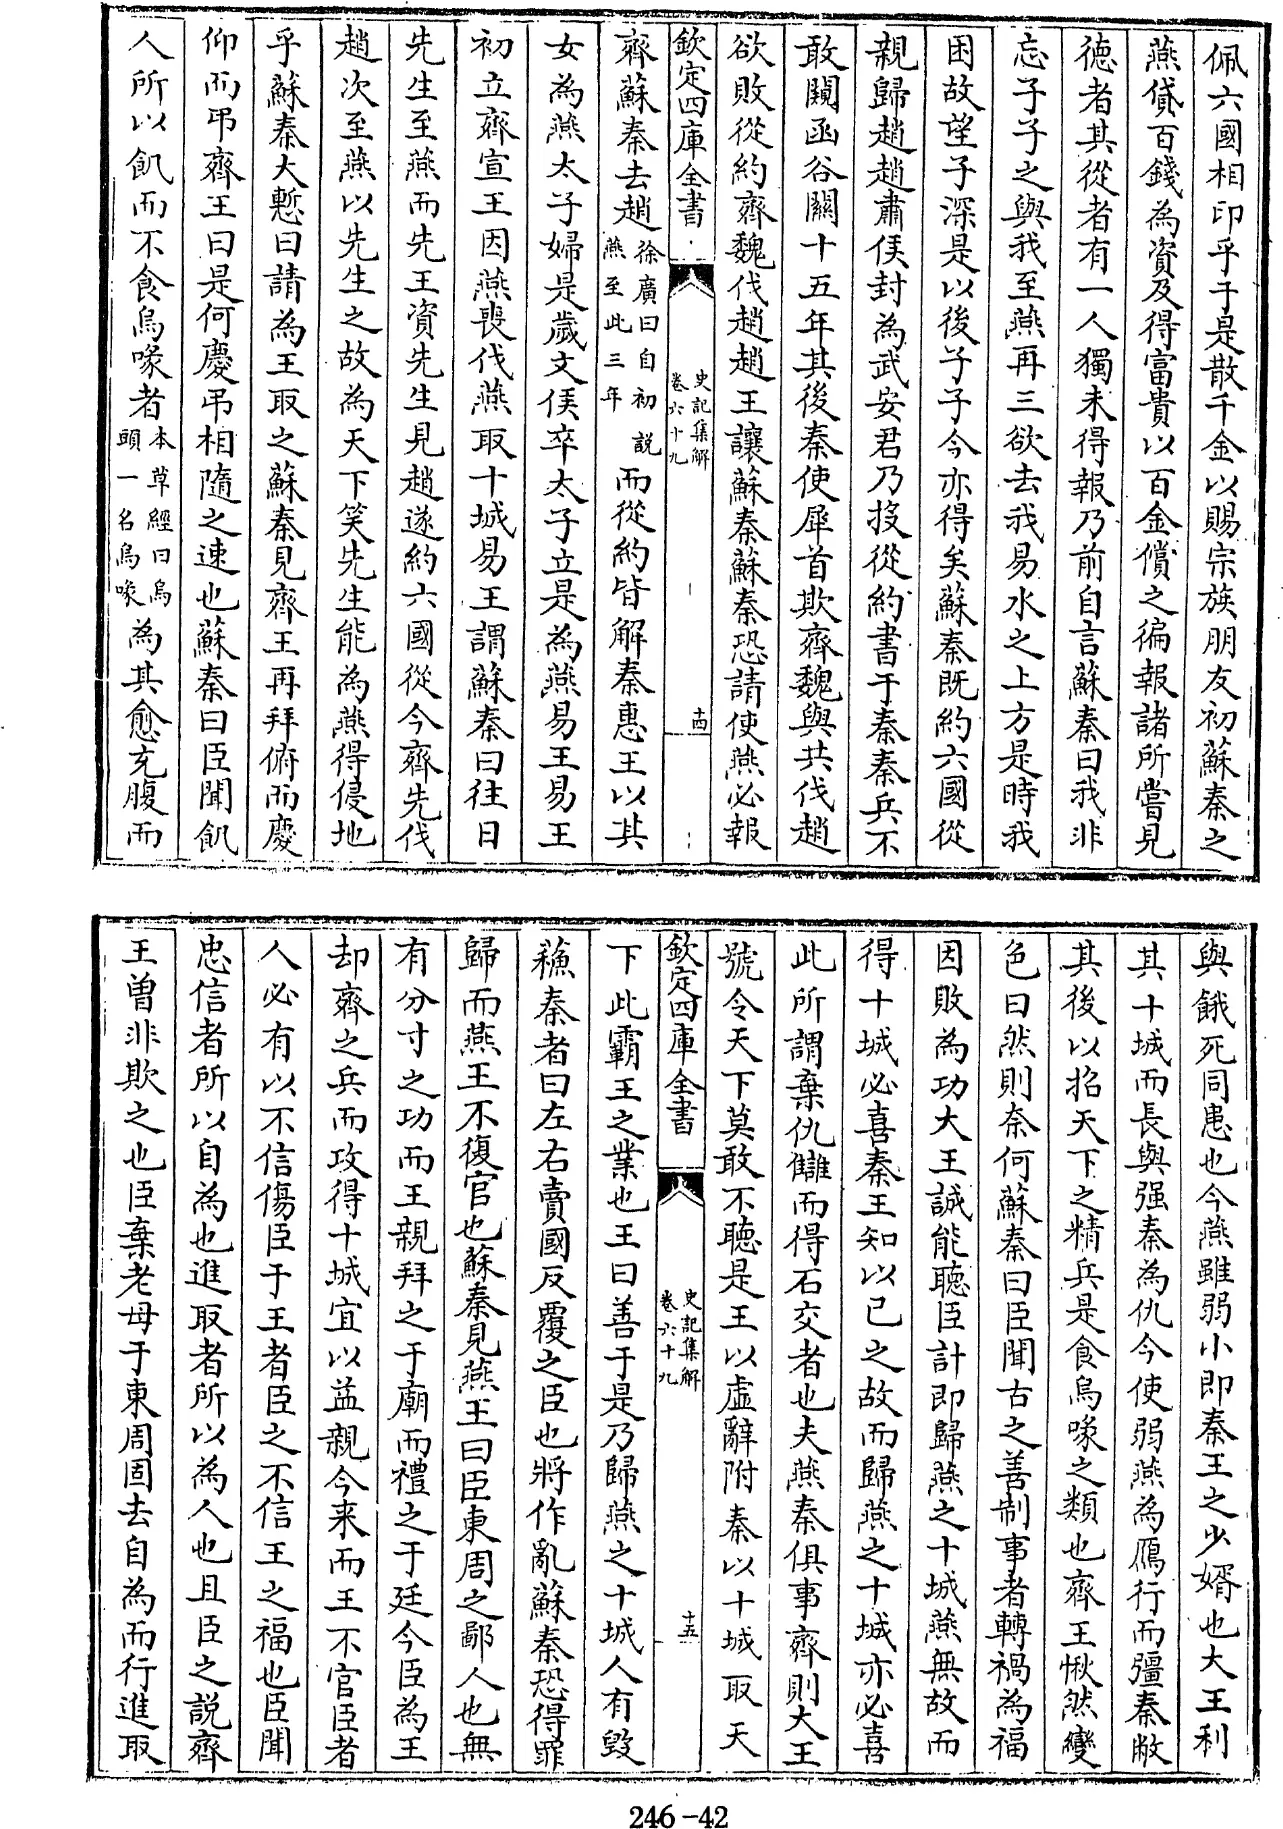 佩六國相印乎于是散千金以賜宗族朋友初蘇秦之
燕貸百錢為資及得富貴以百金償之徧報諸所嘗見
德者其從者有一人獨未得報乃前自言蘇秦曰我非
忘子子之與我至燕再三欲去我易水之上方是時我
困故望子深是以後子子今亦得矣蘇秦既約六國從
親歸趙趙肅侯封為武安君乃投從約書于秦秦兵不
敢闚函谷關十五年其後秦使犀首欺齊魏與共伐趙
欲敗從約齊魏伐趙趙王讓蘇秦蘇秦恐請使燕必報
欽定四庫全書
史記集解
卷六十九
十四
齊蘇秦去趙徐廣曰自初說燕至此三年而從約皆解秦惠王以其
女為燕太子婦是歲文侯卒太子立是為燕易王易王
初立齊宣王因燕喪伐燕取十城易王謂蘇秦曰往日
先生至燕而先王資先生見趙遂約六國從今齊先伐
趙次至燕以先生之故為天下笑先生能為燕得侵地
乎蘇秦大慙曰請為王取之蘇秦見齊王再拜俯而慶
仰而弔齊王曰是何慶弔相隨之速也蘇秦曰臣聞飢
人所以飢而不食烏喙者本草經曰烏頭一名烏喙為其愈充腹而
與餓死同患也今燕雖弱小即秦王之少婿也大王利
其十城而長與强秦為仇今使弱燕為鴈行而彊秦敝
其後以招天下之精兵是食烏喙之類也齊王愀然變
色曰然則奈何蘇秦曰臣聞古之善制事者轉禍為福
因敗為功大王誠能聽臣計即歸燕之十城燕無故而
得十城必喜秦王知以己之故而歸燕之十城亦必喜
此所謂棄仇讎而得石交者也夫燕秦俱事齊則大王
號令天下莫敢不聽是王以虛辭附秦以十城取天
欽定四庫全書
史記集解
卷六十九
十五
下此霸王之業也王曰善于是乃歸燕之十城人有毀
蘓秦者曰左右賣國反覆之臣也將作亂蘇秦恐得罪
歸而燕王不復官也蘇秦見燕王曰臣東周之鄙人也無
有分寸之功而王親拜之于廟而禮之于廷今臣為王
却齊之兵而攻得十城宜以益親今来而王不官臣者
人必有以不信傷臣于王者臣之不信王之福也臣聞
忠信者所以自為也進取者所以為人也且臣之說齊
王曽非欺之也臣棄老母于東周固去自為而行進取
246-42